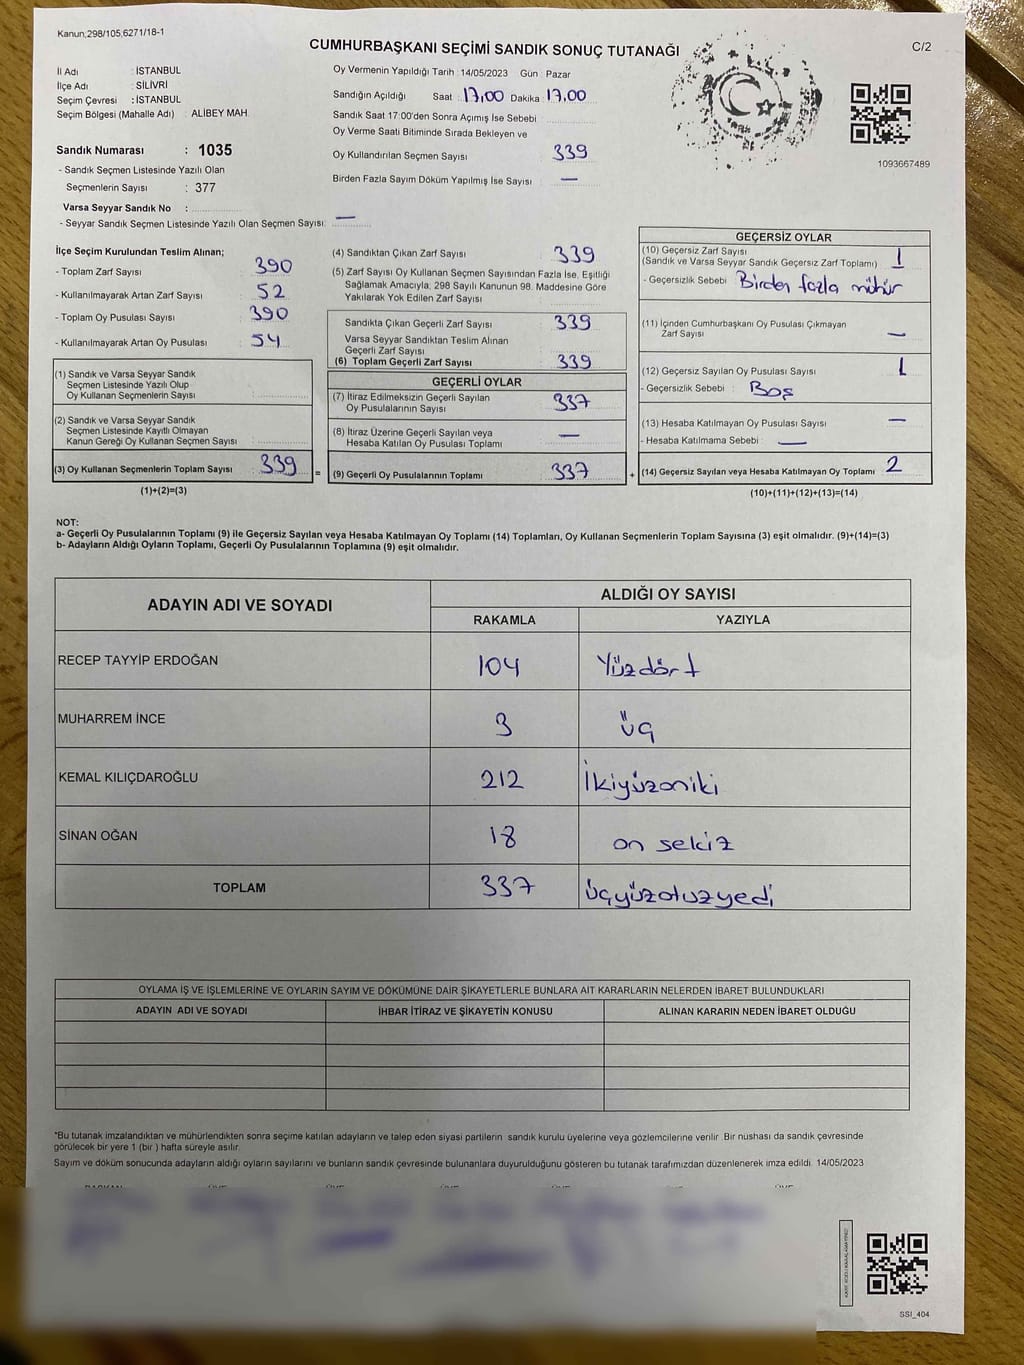 Kanun;298/105,6271/18-1
CUMHURBAŞKANI SEÇİMİ SANDIK SONUÇ TUTANAĞI
C/2
İl Adı : İSTANBUL
İlçe Adı : SİLİVRİ
Seçim Çevresi : İSTANBUL
Seçim Bölgesi (Mahalle Adı) : ALİBEY MAH.
Sandık Numarası : 1035
- Sandık Seçmen Listesinde Yazılı Olan
Seçmenlerin Sayısı : 377
Varsa Seyyar Sandık No :
- Seyyar Sandık Seçmen Listesinde Yazılı Olan Seçmen Sayısı: —
Oy Vermenin Yapıldığı Tarih : 14/05/2023 Gün : Pazar
Sandığın Açıldığı Saat : 17,00 Dakika : 17,00
Sandık Saat 17:00'den Sonra Açımış İse Sebebi
Oy Verme Saati Bitiminde Sırada Bekleyen ve
Oy Kullandırılan Seçmen Sayısı : 339
Birden Fazla Sayım Döküm Yapılmış İse Sayısı : —
1093667489
İlçe Seçim Kurulundan Teslim Alınan;
- Toplam Zarf Sayısı : 390
- Kullanılmayarak Artan Zarf Sayısı : 52
- Toplam Oy Pusulası Sayısı : 390
- Kullanılmayarak Artan Oy Pusulası : 54
(1) Sandık ve Varsa Seyyar Sandık
Seçmen Listesinde Yazılı Olup
Oy Kullanan Seçmenlerin Sayısı :
(2) Sandık ve Varsa Seyyar Sandık
Seçmen Listesinde Kayıtlı Olmayan
Kanun Gereği Oy Kullanan Seçmen Sayısı :
(3) Oy Kullanan Seçmenlerin Toplam Sayısı : 339 =
(1)+(2)=(3)
(4) Sandıktan Çıkan Zarf Sayısı : 339
(5) Zarf Sayısı Oy Kullanan Seçmen Sayısından Fazla İse, Eşitliği
Sağlamak Amacıyla; 298 Sayılı Kanunun 98. Maddesine Göre
Yakılarak Yok Edilen Zarf Sayısı :
Sandıkta Çıkan Geçerli Zarf Sayısı : 339
Varsa Seyyar Sandıktan Teslim Alınan
Geçerli Zarf Sayısı :
(6) Toplam Geçerli Zarf Sayısı : 339
GEÇERLİ OYLAR
(7) İtiraz Edilmeksizin Geçerli Sayılan
Oy Pusulalarının Sayısı : 337
(8) İtiraz Üzerine Geçerli Sayılan veya
Hesaba Katılan Oy Pusulası Toplamı : —
(9) Geçerli Oy Pusulalarının Toplamı : 337 +
GEÇERSİZ OYLAR
(10) Geçersiz Zarf Sayısı
(Sandık ve Varsa Seyyar Sandık Geçersiz Zarf Toplamı) : 1
- Geçersizlik Sebebi : Birden fazla mühür
(11) İçinden Cumhurbaşkanı Oy Pusulası Çıkmayan
Zarf Sayısı : —
(12) Geçersiz Sayılan Oy Pusulası Sayısı : 1
- Geçersizlik Sebebi : Boş
(13) Hesaba Katılmayan Oy Pusulası Sayısı : —
- Hesaba Katılmama Sebebi : —
(14) Geçersiz Sayılan veya Hesaba Katılmayan Oy Toplamı : 2
(10)+(11)+(12)+(13)=(14)
NOT:
a- Geçerli Oy Pusulalarının Toplamı (9) ile Geçersiz Sayılan veya Hesaba Katılmayan Oy Toplamı (14) Toplamları, Oy Kullanan Seçmenlerin Toplam Sayısına (3) eşit olmalıdır. (9)+(14)=(3)
b- Adayların Aldığı Oyların Toplamı, Geçerli Oy Pusulalarının Toplamına (9) eşit olmalıdır.
ADAYIN ADI VE SOYADI
ALDIĞI OY SAYISI
RAKAMLA YAZIYLA
RECEP TAYYİP ERDOĞAN 104 Yüzdört
MUHARREM İNCE 3 üç
KEMAL KILIÇDAROĞLU 212 İkiyüzoniki
SİNAN OĞAN 18 on sekiz
TOPLAM 337 üçyüzotuzyedi
OYLAMA İŞ VE İŞLEMLERİNE VE OYLARIN SAYIM VE DÖKÜMÜNE DAİR ŞİKAYETLERLE BUNLARA AİT KARARLARIN NELERDEN İBARET BULUNDUKLARI
ADAYIN ADI VE SOYADI İHBAR İTİRAZ VE ŞİKAYETİN KONUSU ALINAN KARARIN NEDEN İBARET OLDUĞU
*Bu tutanak imzalandıktan ve mühürlendikten sonra seçime katılan adayların ve talep eden siyasi partilerin sandık kurulu üyelerine veya gözlemcilerine verilir .Bir nüshası da sandık çevresinde
görülecek bir yere 1 (bir ) hafta süreyle asılır.
Sayım ve döküm sonucunda adayların aldığı oyların sayılarını ve bunların sandık çevresinde bulunanlara duyurulduğunu gösteren bu tutanak tarafımızdan düzenlenerek imza edildi. 14/05/2023
SSİ_404